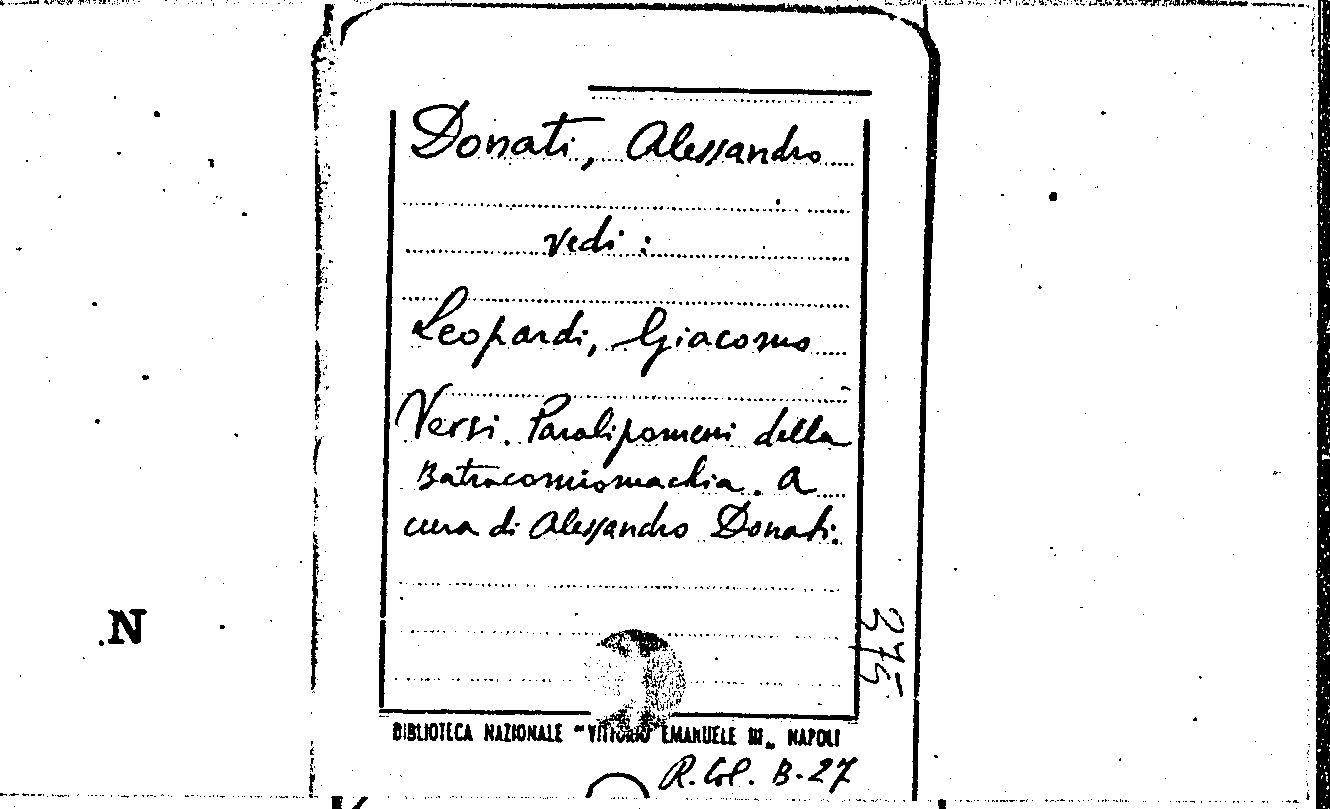 Donati, Alessandro
vedi :
Leopardi, Giacomo
Versi. Paralipomeni della
Batracomiomachia. A
cura di Alessandro Donati.
N
375
BIBLIOTECA NAZIONALE "VITTORIO EMANUELE III„ NAPOLI
R. Col. B-27